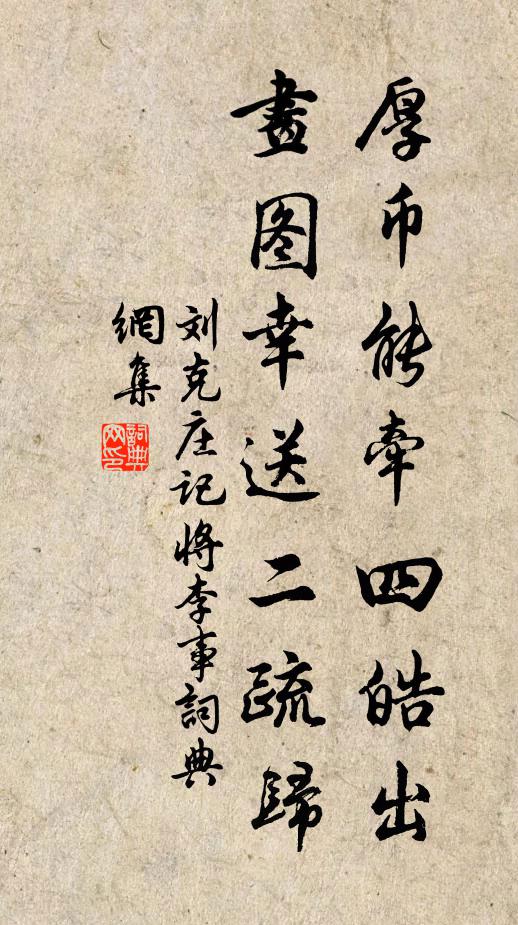 厚币能牵四皓出
畫图幸送二疏歸
刘克庄记将李事詞典
網集
詞典网印